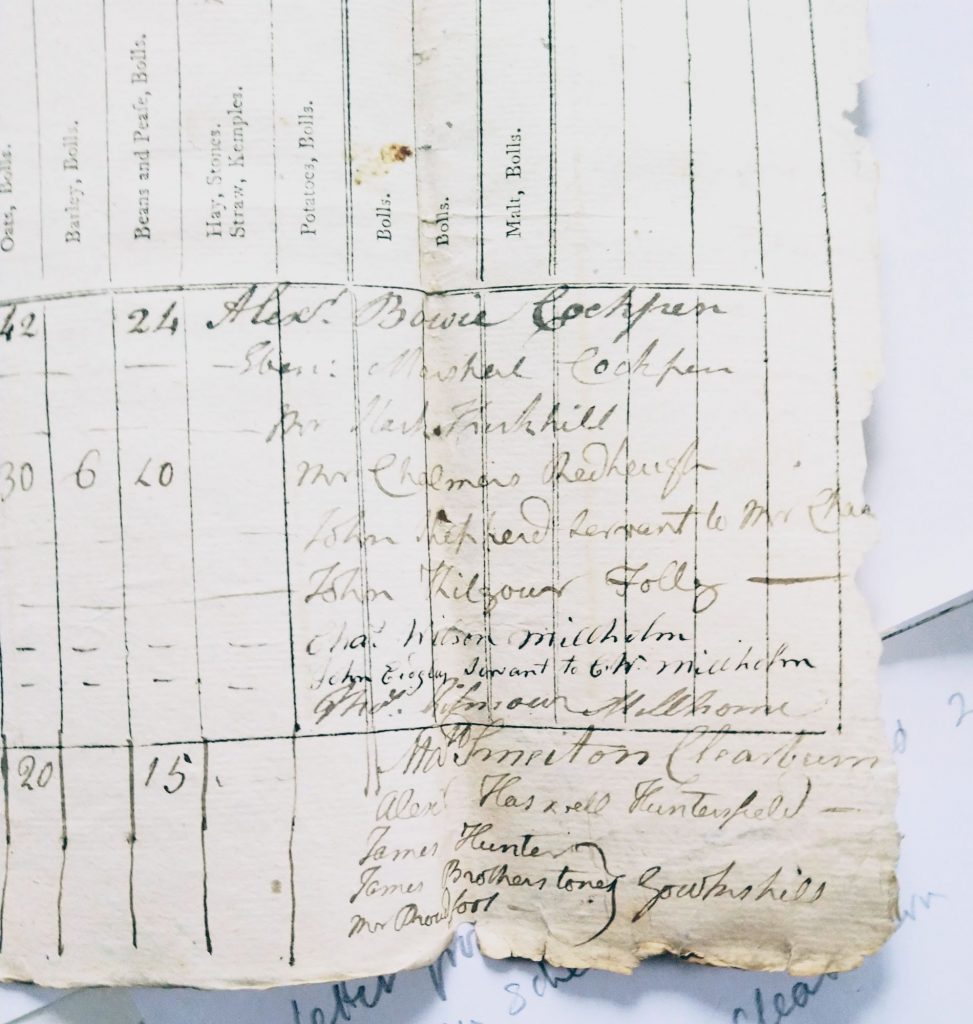 Oats, Bolls.
Barley, Bolls.
Beans and Pease, Bolls.
Hay, Stones.
Straw, Kemples.
Potatoes, Bolls.
Bolls.
Bolls.
Malt, Bolls.
42 24 Alexr. Bowie Cockpen
— — — Eben: Marshal Cockpen
Mr Kirkhill
30 6 20 Mr Chalmers Redheugh
John Shepherd Servant to Mr Cha
John Kilgour Folly —
- - - - Chas. Wilson Millholm
- - - - John Servant to C.W. Millholm
Thos. Kilmour Millhome
20 15 Smeiton Clearburn
Alexr Haswell Huntersfield —
James Hunter
James Brotherstones Gowkshills
Mr Proudfoot
letter